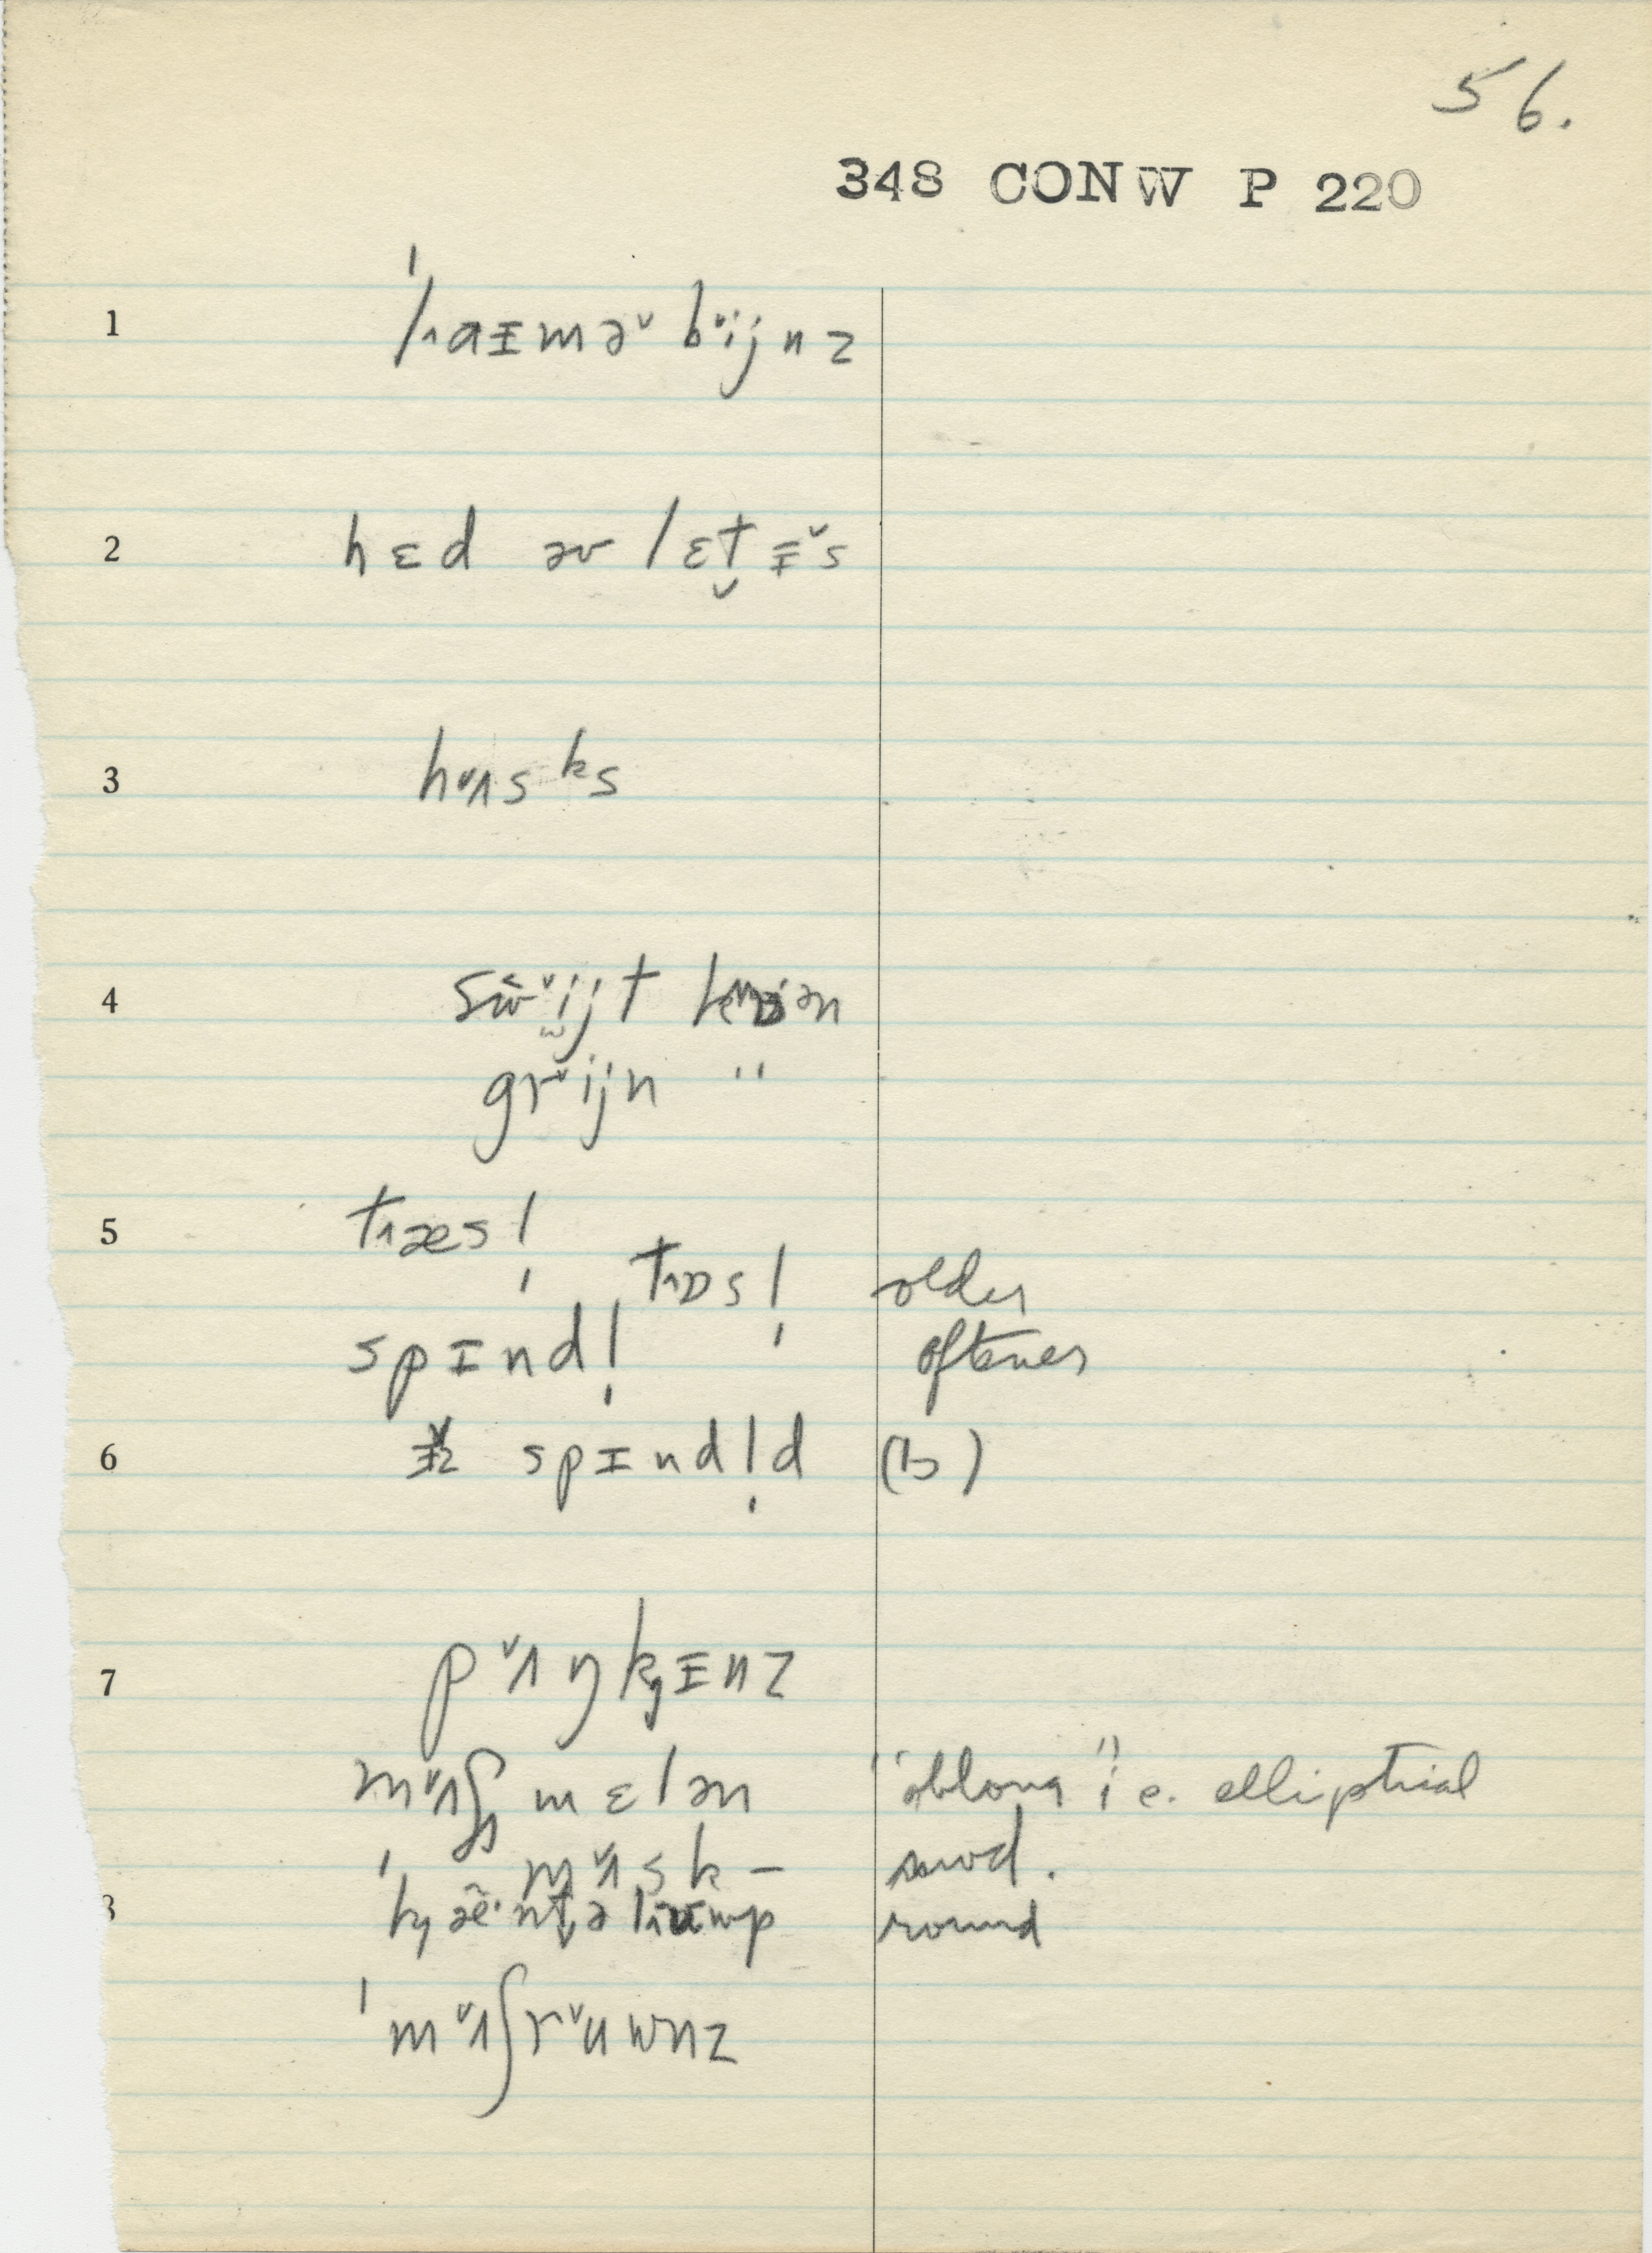 56.
348 CONW P 220
1 ˈlaɪmə˅ b˅ijnz
2 hɛd əv lɛt̬ɪ˅s
3 h˅ʌsks
4 sw˅ijt
gr˅ijn "
5 tæs l̩
tɒs l̩ older
spɪnd l̩ oftener
6 spɪnd l̩ d (b)
7 p˅ʌŋkɪnz
m˅ʌʃ mɛlən "oblong" i e. elliptical
m˅ʌsk – mod.
8 round
ˈm˅ʌʃr˅uwnz